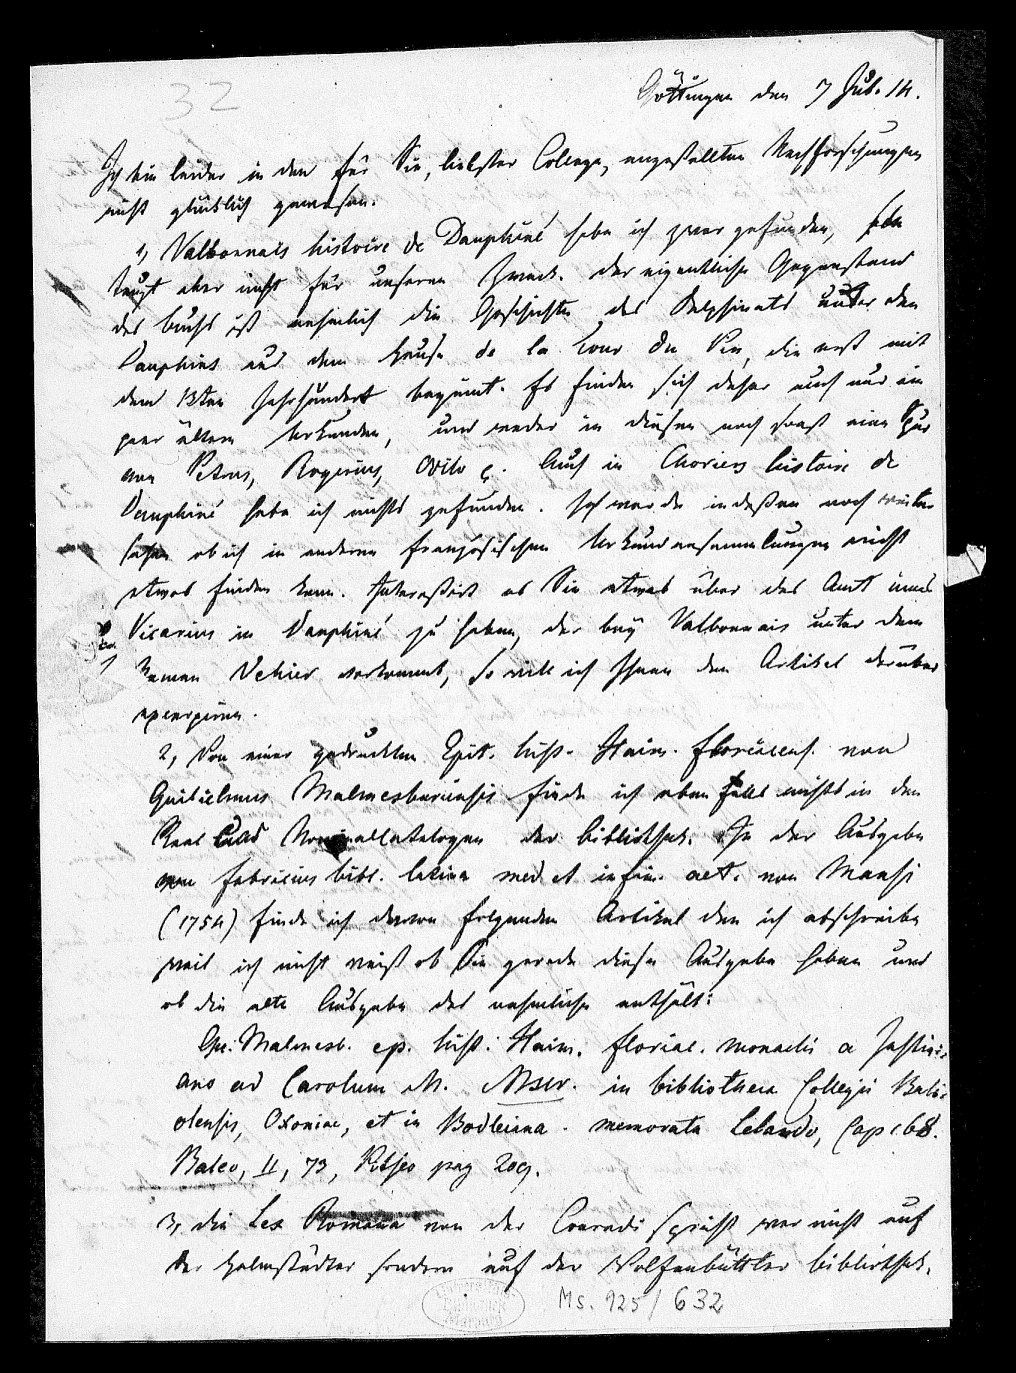 32
Göttingen den 7 Jul. 14.
Ich bin leider in den für Sie, liebster College, angestellten Nachforschungen
nicht glücklich gewesen.
1, Valbonnais histoire de Dauphiné habe ich zwar gefunden, sie
taugt aber nicht für unseren Zweck. Der eigentliche Gegenstand
des Buchs ist nehmlich die Geschichte des Delphinats unter den
Dauphins aus dem Hause de la Tour du Pin, die erst mit
dem 13ten Jahrhundert beginnt. Es finden sich daher auch nur ein
paar ältere Urkunden, und weder in diesen noch sonst eine Spur
von Petrus, Rogerius, Odilo c. Auch in Choriers histoire de
Dauphiné habe ich nichts gefunden. Ich werde indeßen noch weiter
sehen ob ich in anderen französischen Urkundensammlungen nicht
etwas finden kann. Interessirt es Sie etwas über das Amt eines
Vicarius in Dauphiné zu haben, der bey Valbonnais unter dem
Namen Vehier vorkommt, so will ich Ihnen den Artikel darüber
excerpiren.
2, Von einer gedruckten Epit. hist. Haim. floriacens. von
Guilielmus Malmesburiensis finde ich eben falls nichts in den
Real und Nominalcatalogen der Bibliothek. In der Ausgabe
von Fabricius bibl. latina med. et infim. aet. von Mansi
(1754) finde ich davon folgenden Artikel den ich abschreibe
weil ich nicht weiß ob Sie gerade diese Ausgabe haben und
ob die alte Ausgabe das nehmliche enthält:
Gu. Malmesb. ep. hist. Haim. floriac. monachi a Justini-
ano ad Carolum M. Mscr. in bibliotheca Collegii Balio-
olensis, Oxoniae, et in Bodleiana. memorata Lelando, Cap. 168.
Baleo, II, 73, Pitseo pag 209.
3, die Lex Romana von der Conradi spricht war nicht auf
der Helmstädter sondern auf der Wolfenbüttler Bibliothek.
Ms. 925/632